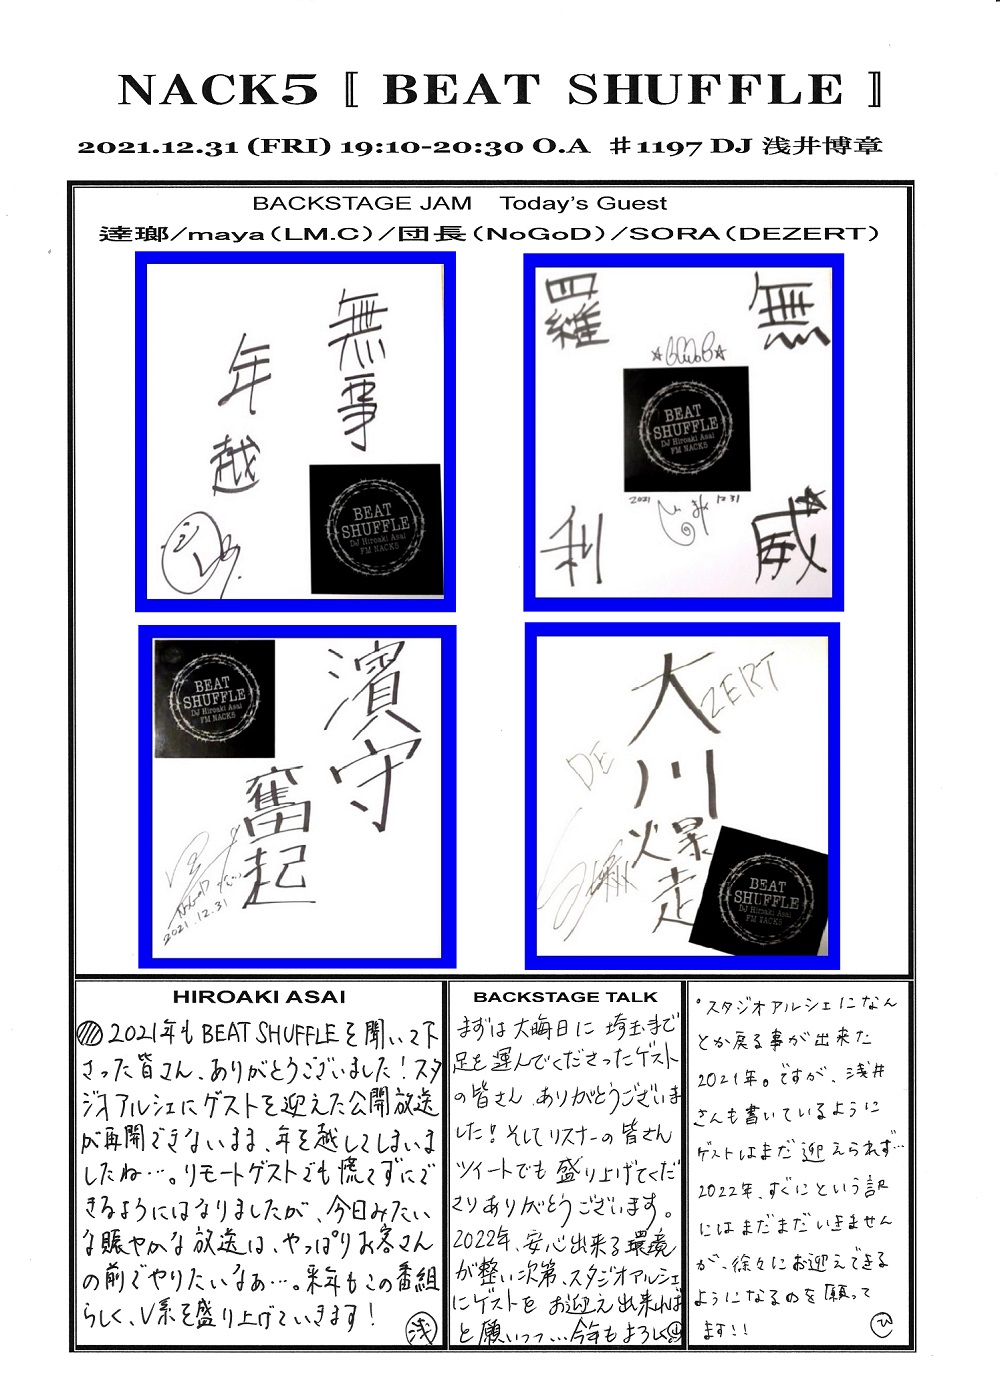 NACK5 〚 BEAT SHUFFLE 〛
2021.12.31 (FRI) 19:10-20:30 O.A ♯1197 DJ 浅井博章
BACKSTAGE JAM Today's Guest
逹瑯/maya(LM.C)/団長(NoGoD)/SORA(DEZERT)
無事
年越
BEAT
SHUFFLE
DJ Hiroaki Asai
FM NACK5
無
威
羅
利
BEAT
SHUFFLE
DJ Hiroaki Asai
FM NACK5
2021
12 31
濱守
奮起
BEAT
SHUFFLE
DJ Hiroaki Asai
FM NACK5
NoGoD
2021.12.31
大川爆走
DE
ZERT
BEAT
SHUFFLE
DJ Hiroaki Asai
FM NACK5
HIROAKI ASAI
2021年もBEAT SHUFFLEを聞いて下
さった皆さん、ありがとうございました!スタ
ジオアルシェにゲストを迎えた公開放送
が再開できないまま、年を越してしまいま
したね…。リモートゲストでも慌てずにで
きるようにはなりましたが、今日みたい
な賑やかな放送は、やっぱりお客さん
の前でやりたいなぁ…。来年もこの番組
らしく、V系を盛り上げていきます!
浅
BACKSTAGE TALK
まずは大晦日に埼玉まで
足を運んでくださったゲスト
の皆さん ありがとうございま
した!そしてリスナーの皆さん
ツイートでも盛り上げてくだ
さりありがとうございます。
2022年、安心出来る環境
が整い次第、スタジオアルシェ
にゲストをお迎え出来れば
と願いつつ…今年もよろしく
スタジオアルシェになん
とか戻る事が出来た
2021年。ですが、浅井
さんも書いているように
ゲストはまだ迎えられず…
2022年、すぐにという訳
にはまだまだいきません
が、徐々にお迎えできる
ようになるのを願って
ます!!
ひ